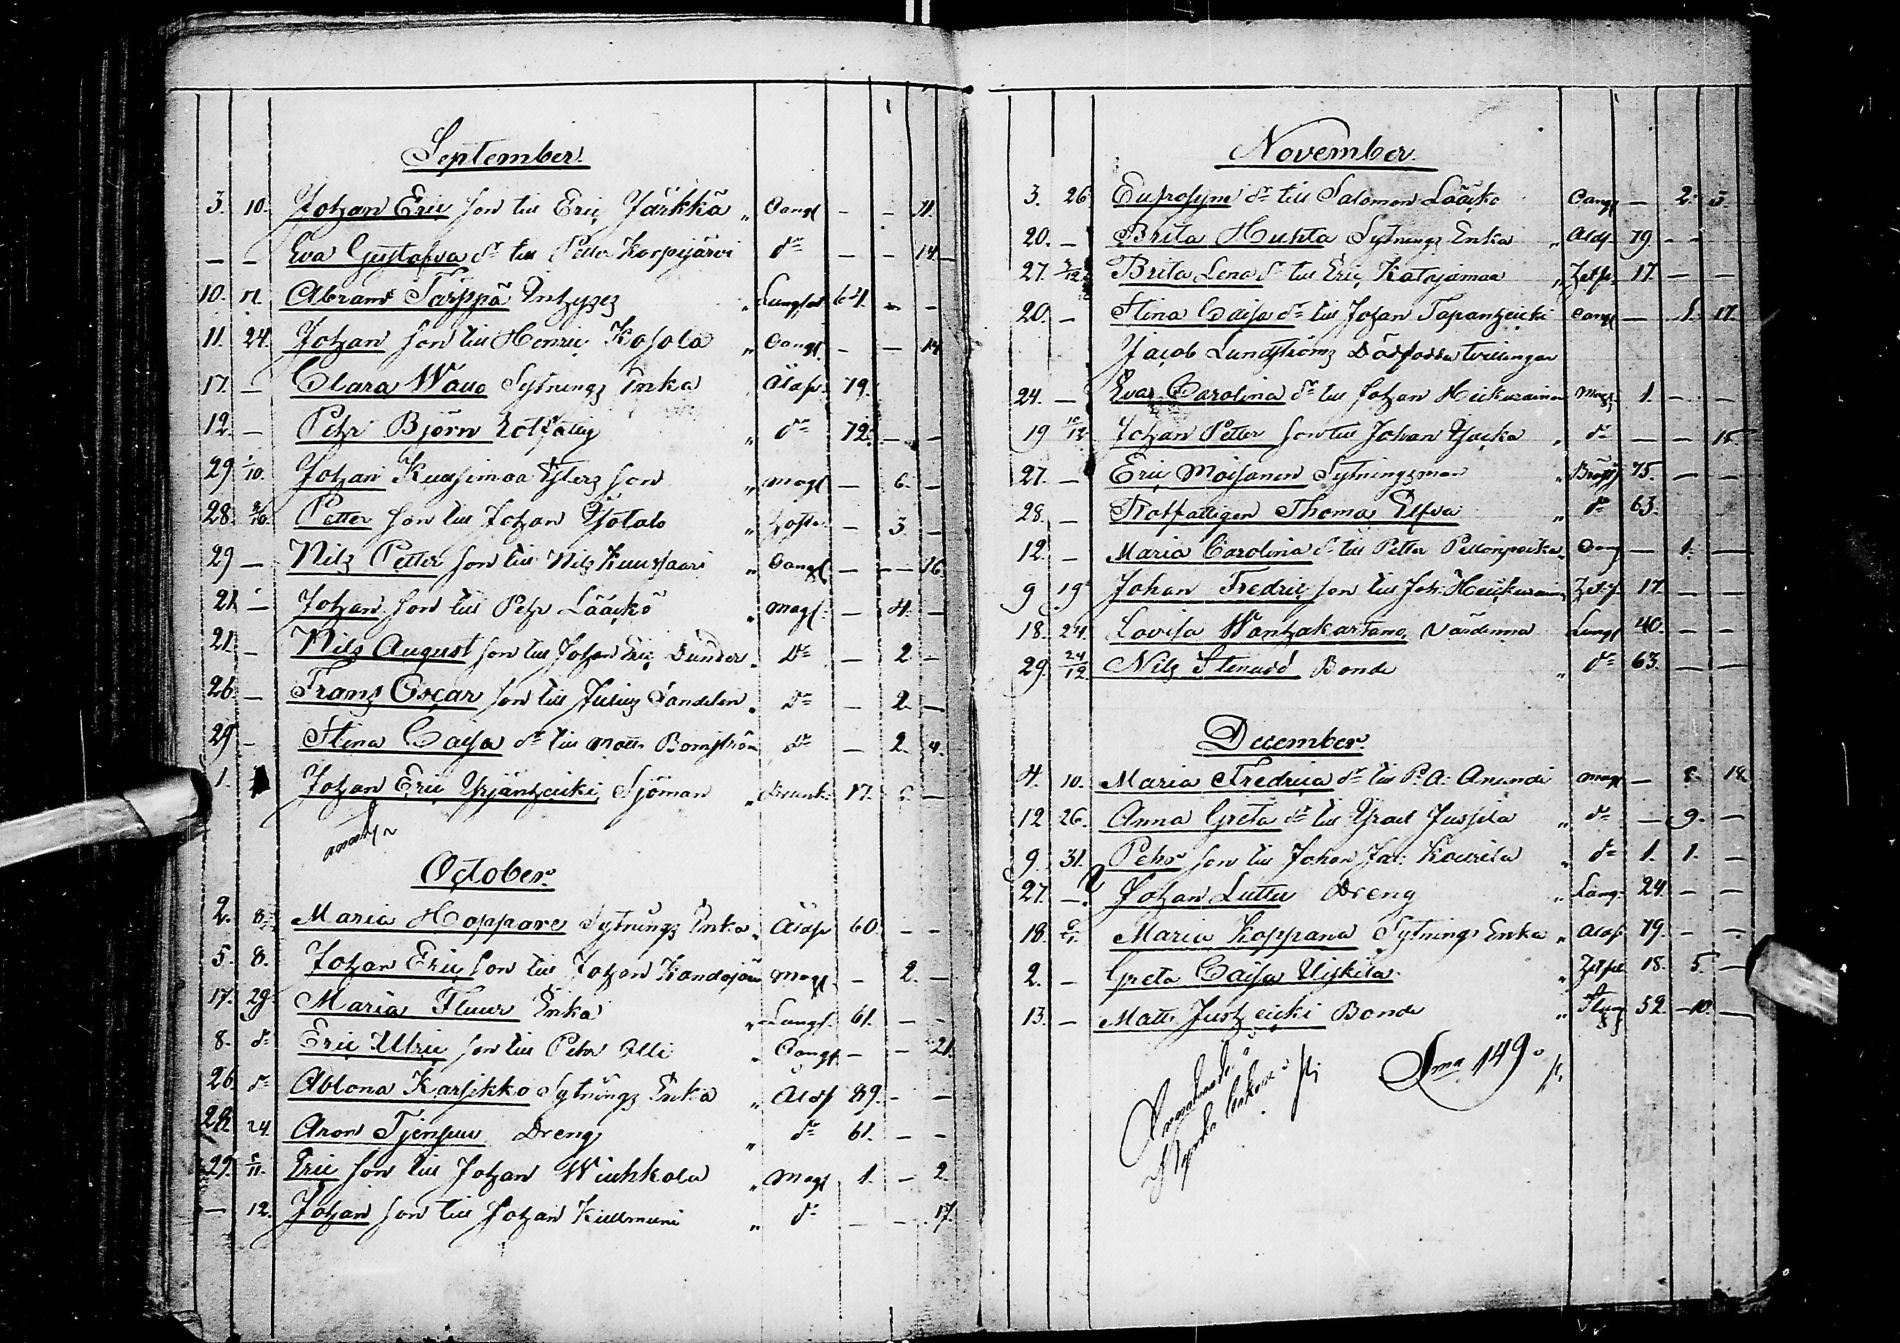 September.
3. 10. Johan Eric son till Eric Järkkä " Qangf — — 11.
— — Eva Gustafva dr till Petter Korpijärvi dº — — 14 —
10. 17. Abram Tärppä " Lungsot 64. — —
11. 24. Johan son till Henric Kosola " Qangf. — — 14
17. — Clara Wallo Sytnings Enka " Åldf. 79.
12. — Petr Björn Rotfattig " dº 72. — —
29. 1/10. Johan Kuusimaa son " magf — 6. —
28. 3/10. Petter son till Johan — 3 —
29 — Nils Petter son till Nils Kuusjaari " Qangf. — — 16.
21. — Johan son till Petr Lääckö " magf. — 4. —
21. — Nils August son till Johan Eric Dunder " Dº — 2. —
26. — Frans Oscar son till Julius Sandelin " Dº — 2. —
29 — Stina Cajsa dr till Matts Bomström dº — 2. 4.
1. Johan Eric Yrjänheicki Sjöman " Drunk. 17. —
October.
2. 8. Maria Hoppare Sytnings Enka " Åldf 60 — —
5. 8. Johan Eric son till Johan Kandojärvi magf — 2. —
17. 29. Maria Fluur Enka " Lungf. 61. — —
8. dº Eric Ulric son till Petr Olli " Qangf — — 21.
26. dº Ablona Karsikko Sytnings Enka " Åldf 89. — —
28. 24. Aron Dreng " dº 61. — —
29. 5/11. Eric son till Johan Wiuhkola " Magf 1. — 2.
— 12. Johan son till Johan " dº — — 17.
November.
3. 26 Eufrosym dr till Salomon Lääcko Qangf — 2. 3.
20. — Brita Huhta Sytnings Enka " Åldf 79 — —
27. Brita Lena dr till Eric Katajamaa 17. — —
20. — Stina Caisa dr till Johan Tapanheicki Qangf — 1. 17.
Jacob Lundströms Dödfödda tvillingar
24. — Eva Carolina dr till Johan Heickurainen Magf 1. — —
19 10/12. Johan Petter son till Johan " dº — — 15
27. — Eric Moisanen Sytningsman " Bröstf 75. — —
28. — Rotfattigen Thomas Elfva " dº 63. —
12. — Maria Carolina dr till Petter Qangf — 1. —
9 19 Johan Fredric son till Joh: Heickurainen 17. — —
18. 24. Lovisa Wärdinna Lungf 40. — —
29. 24/12 Nils Stenudd Bonde " dº 63. — —
December.
4. 10. Maria Fredrica dr till P. A. Anundi magf — 8. 18.
12 26. Anna Greta dr till Israel Jussila " dº — 9. —
9. 31. Pehr son till Johan Jac: Kourila " dº 1. 1. —
27. — Johan Luttu Dreng " Lung 24. — —
18. Maria Koppana Sytnings Enka " Åldf 79. — —
2. — Greta Caisa Uiskila " 18. 5. —
13. — Matts Bonde " 52. — 10. —
Sma 149. st.